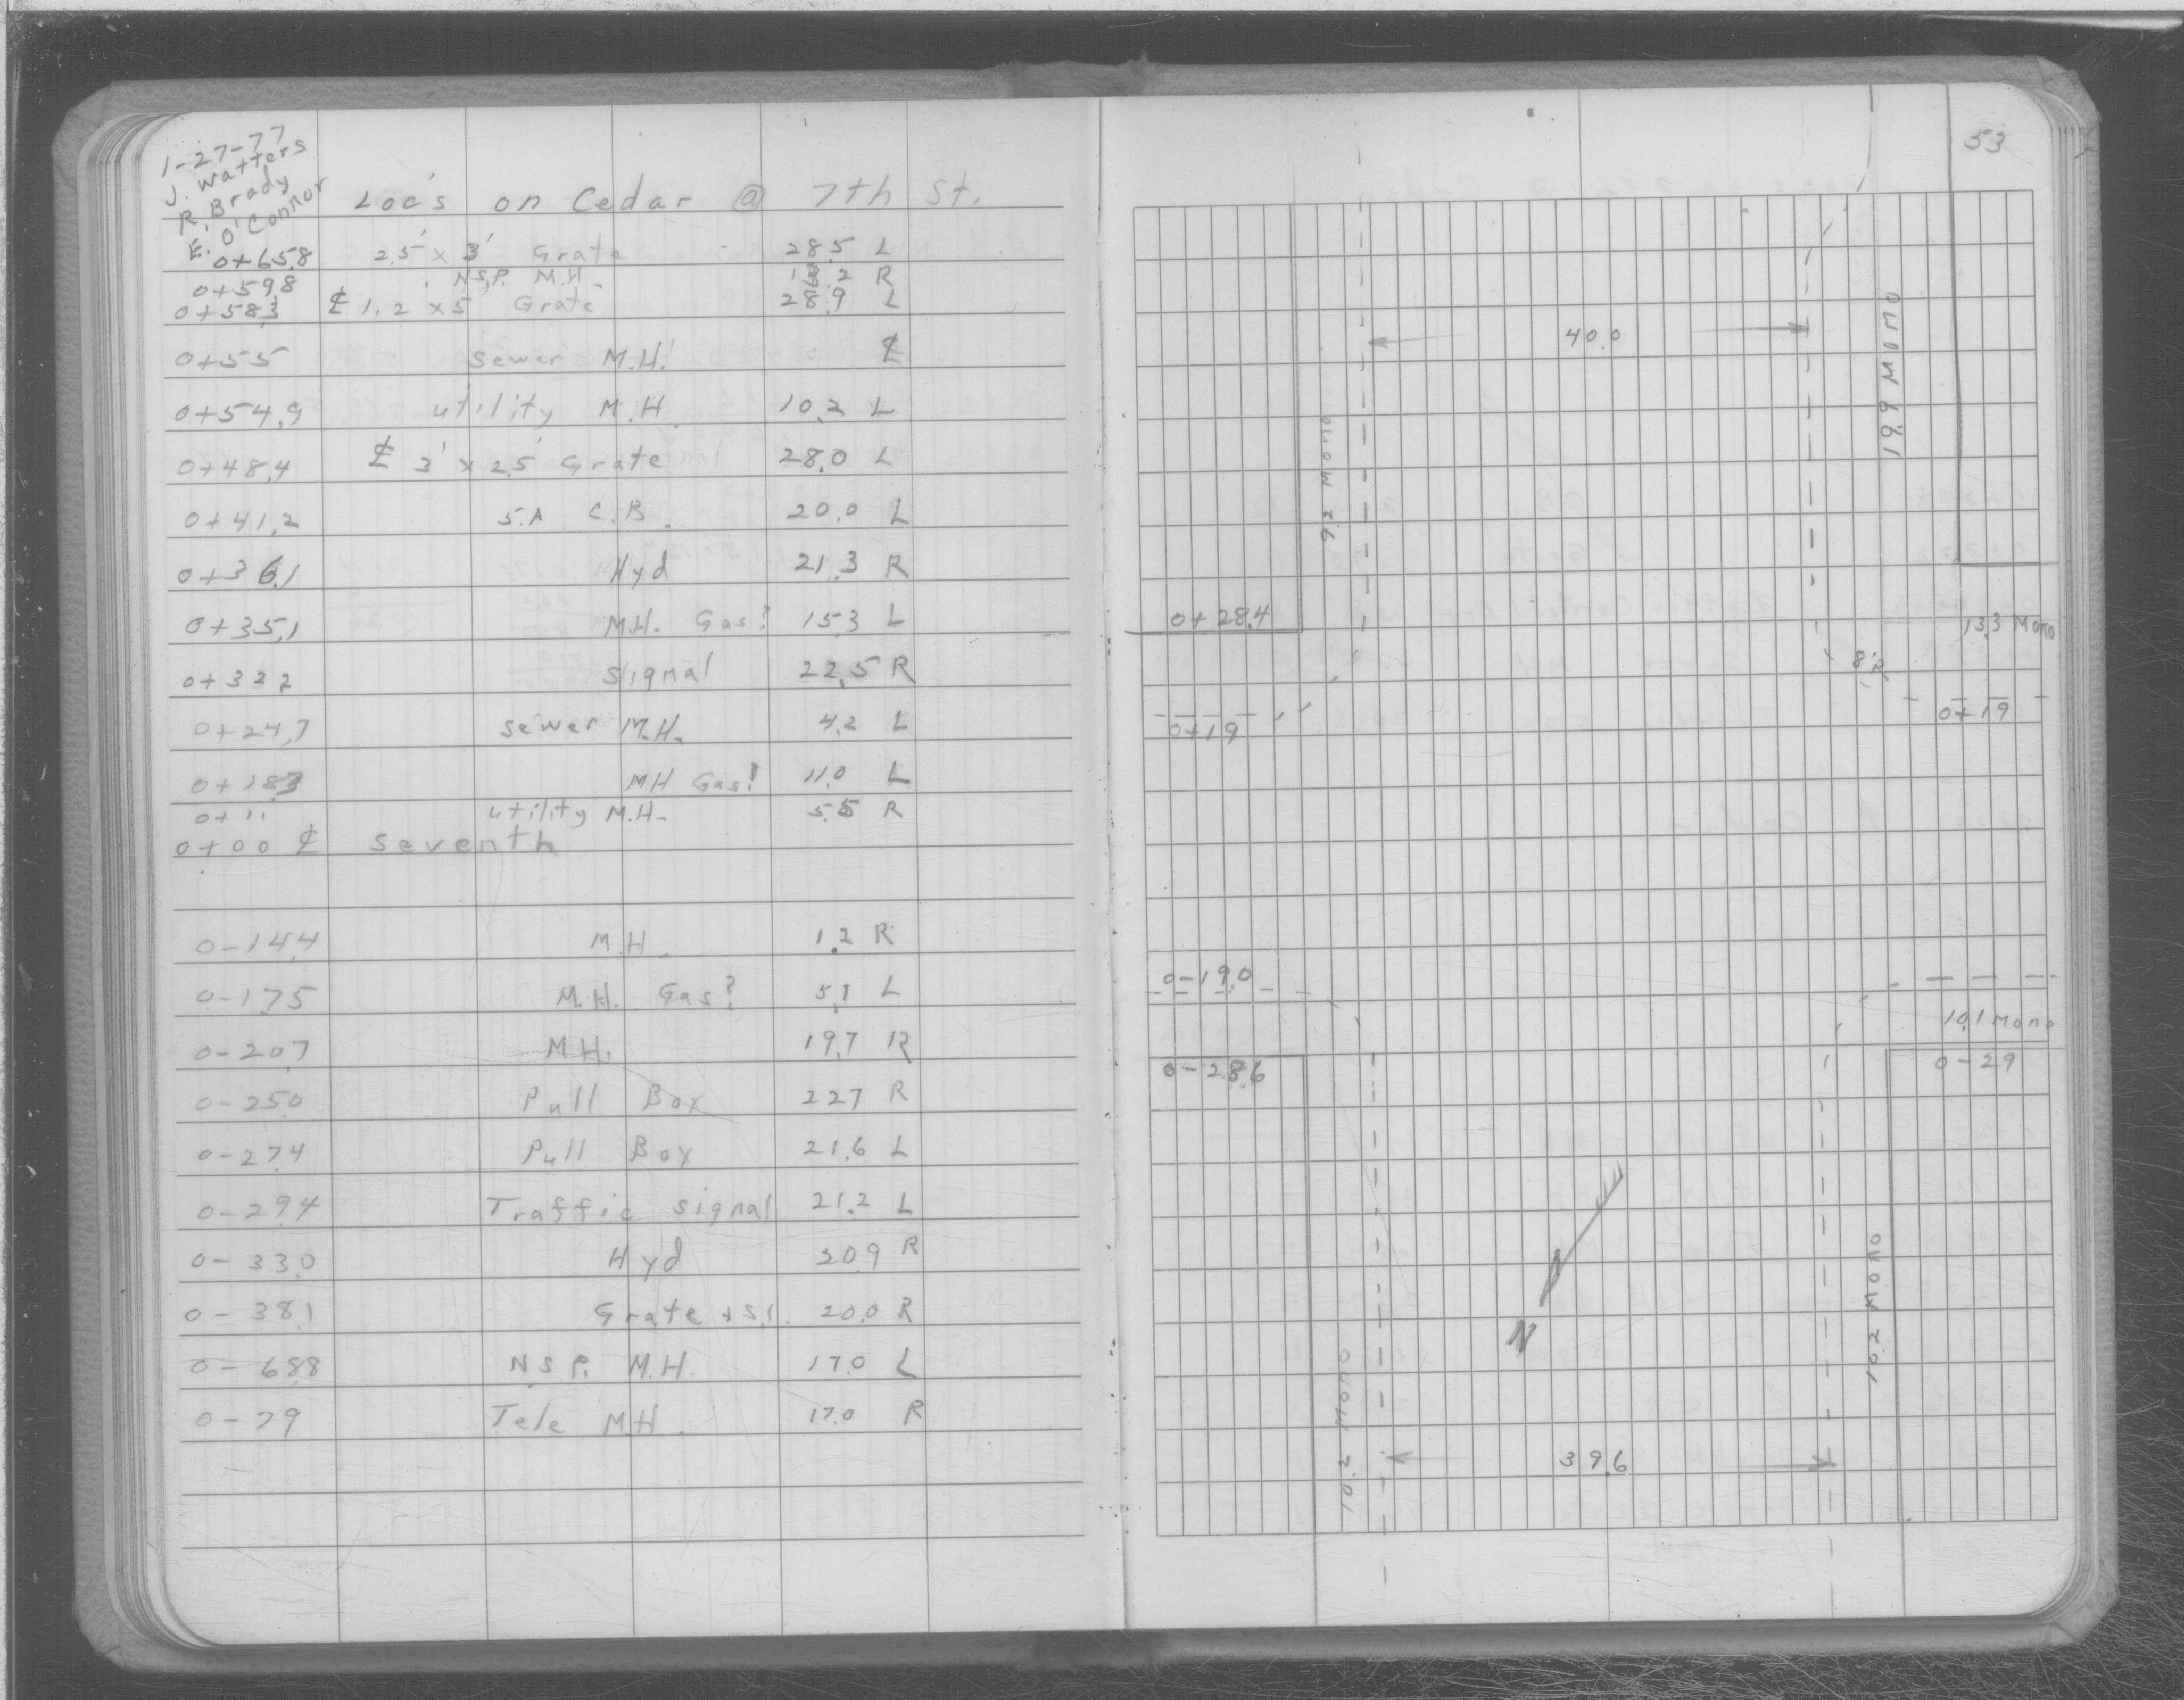 1-27-77
J. Watters
R. Brady
E. O'Connor
Loc's on Cedar @ 7th St.
0+65.8 2.5' x 3' Grate 28.5 L
0+59.8 N.S.P. M.H. R
0+58.3 ℄ 1.2 x 5 Grate 28.9 L
0+55 Sewer M.H. ℄
0+54.9 utility M.H. 10.2 L
0+48.4 ℄ 3' x 2.5' Grate 28.0 L
0+41.2 S.A C.B. 20.0 L
0+36.1 Hyd 21.3 R
0+35.1 M.H. Gas? 15.3 L
0+32.2 Signal 22.5 R
0+24.7 Sewer M.H. 4.2 L
0+18.3 MH Gas? 11.0 L
0+11 utility M.H. 5.5 R
0+00 ℄ Seventh
0-14.4 M.H. 1.2 R
0-17.5 M.H. Gas? 5.1 L
0-20.7 M.H. 19.7 R
0-25.0 Pull Box 22.7 R
0-27.4 Pull Box 21.6 L
0-29.4 Traffic Signal 21.2 L
0-33.0 Hyd 20.9 R
0-38.1 Grate + S.I. 20.0 R
0-68.8 N.S.P. M.H. 17.0 L
0-79 Tele MH. 17.0 R
53
40.0
19.9 Mono
9.2 Mono
0+28.4
13.3 Mono
8'R
0+19
0+19
0-19.0
10.1 Mono
0-28.6
0-29
N
10.2 Mono
10.2 Mono
39.6